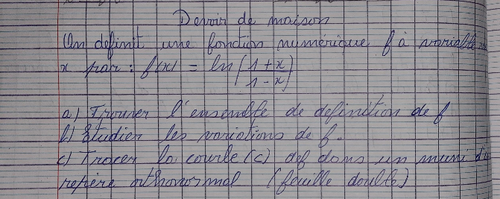 Devoir de maison
On definit une fonction numérique f à variable
x par : f(x) = ln(1+x / 1-x)
a) Trouver l'ensemble de definition de f
b) Etudier les variations de f.
c) Tracer la courbe (c) def dans un muni d'
repère orthonormal (feuille double)